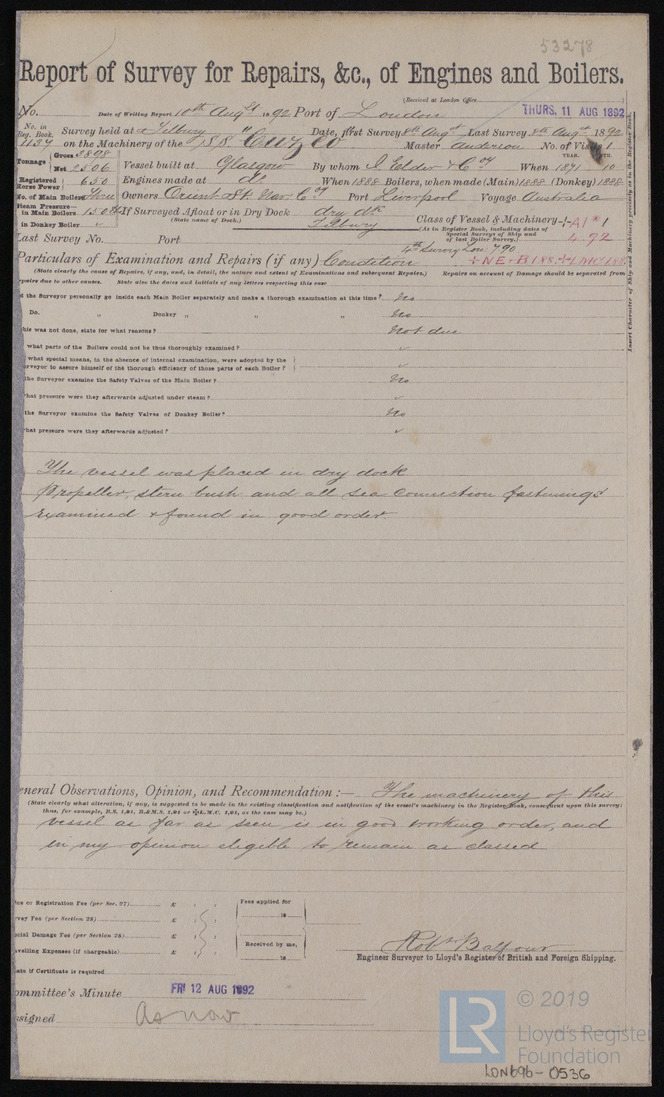 53278
Report of Survey for Repairs, &c., of Engines and Boilers.
(Received at London Office
No. Date of Writing Report 10th Augst 1892 Port of London THURS. 11 AUG 1892
No. in Reg. Book. Survey held at Tilbury Date, first Survey 8th Augst Last Survey 8th Augst 1892
1137 on the Machinery of the "SS "Cuzco" Master Anderson No. of Visits 1
Tonnage Gross 3898 Net 2506 Vessel built at Glasgow By whom J. Elder & Coy When 1871 10
YEAR.
Registered Horse Power 650 Engines made at Do When 1888 Boilers, when made (Main) 1888 (Donkey) 1888
No. of Main Boilers Three Owners Orient St. Nav. Coy Port Liverpool Voyage Australia
Steam Pressure in Main Boilers 150 If Surveyed Afloat or in Dry Dock dry dk Class of Vessel & Machinery A1
in Donkey Boiler (State name of Dock.) Tilbury (As in Register Book, including dates of Special Surveys of Ship and of last Boiler Survey.) 4.92
Last Survey No. Port 4th Survey Lon. 7.90
Particulars of Examination and Repairs (if any) Condition +NE+B188
(State clearly the cause of Repairs, if any, and, in detail, the nature and extent of Examinations and subsequent Repairs.) Repairs on account of Damage should be separated from
repairs due to other causes. State also the dates and initials of any letters respecting this case
Insert Character of Ship and Machinery precisely as in the Register Book.
d the Surveyor personally go inside each Main Boiler separately and make a thorough examination at this time? No
Do. " Donkey " " " No
this was not done, state for what reasons? Not due
what parts of the Boilers could not be thus thoroughly examined?
what special means, in the absence of internal examination, were adopted by the
rveyor to assure himself of the thorough efficiency of those parts of each Boiler?
the Surveyor examine the Safety Valves of the Main Boiler? No
hat pressure were they afterwards adjusted under steam?
the Surveyor examine the Safety Valves of Donkey Boiler? No
hat pressure were they afterwards adjusted?
The vessel was placed in dry dock
Propeller, stern bush and all sea connection fastenings
Examined & found in good order.
eneral Observations, Opinion, and Recommendation :— The machinery of this
(State clearly what alteration, if any, is suggested to be made in the existing classification and notification of the vessel's machinery in the Register Book, consequent upon this survey;
thus, for example, B.S. 1,91, B.&M.S. 1,91 or L.M.C. 1,91, as the case may be.)
vessel as far as seen is in good working order, and
in my opinion eligible to remain as classed
ce or Registration Fee (per Sec. 27) £ : : Fees applied for
rvey Fee (per Section 28) £ : : 18
pecial Damage Fee (per Section 28) £ : : Received by me,
avelling Expenses (if chargeable) £ : : 18
Robt Balfour
Engineer Surveyor to Lloyd's Register of British and Foreign Shipping.
tate if Certificate is required
ommittee's Minute FRI 12 AUG 1892
ssigned As now
LR © 2019
Lloyd's Register
Foundation
LON696-0536